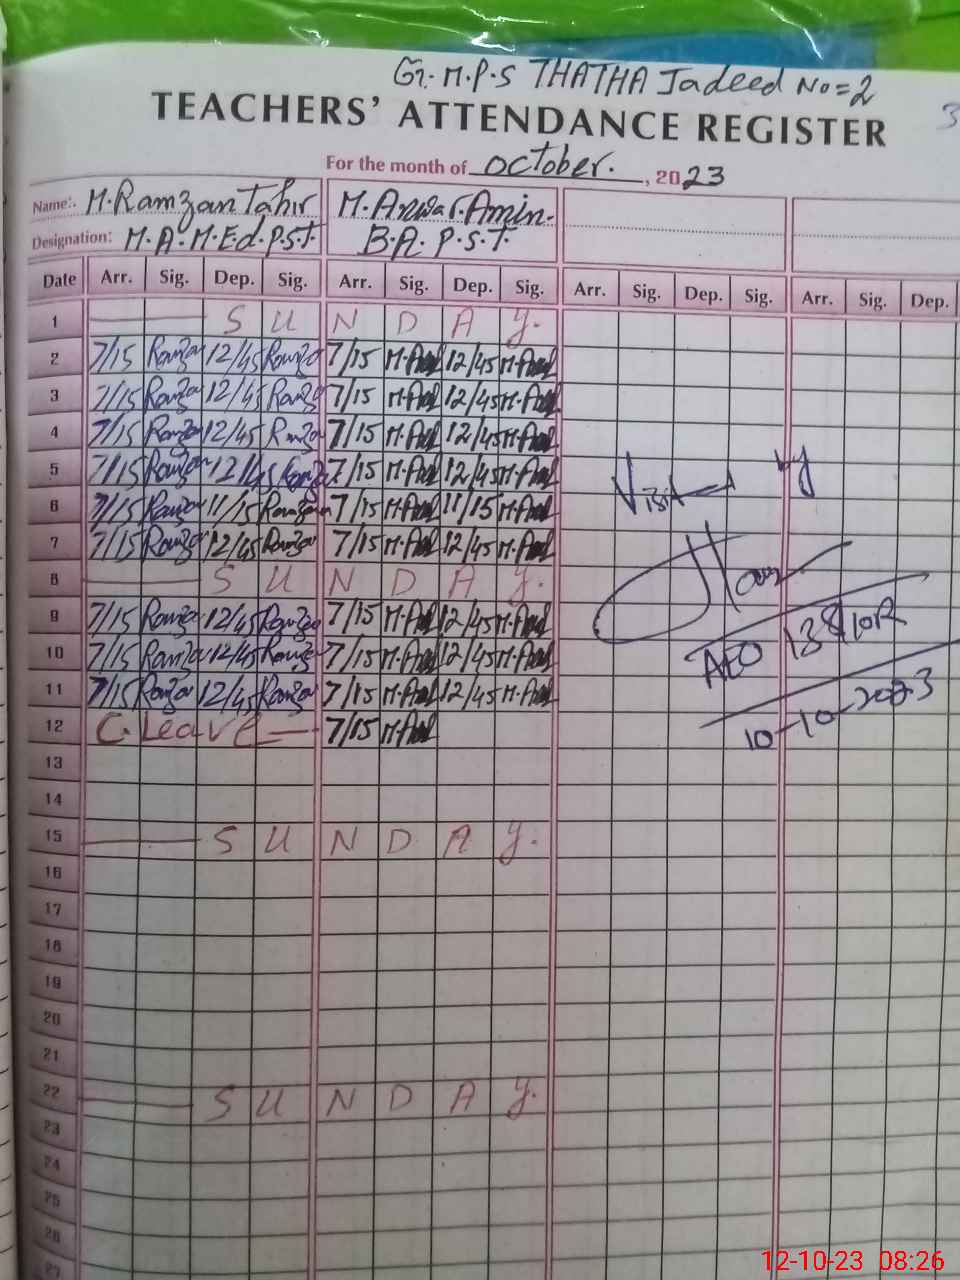 G. M.P.S THATHA Jadeed No=2
TEACHERS' ATTENDANCE REGISTER
3
For the month of October. , 2023
Name:. M.Ramzan Tahir M. Anwar.Amin.
Designation: M.A.M.Ed.P.S.T. B.A. P.S.T.
Date Arr. Sig. Dep. Sig. Arr. Sig. Dep. Sig. Arr. Sig. Dep. Sig. Arr. Sig. Dep.
1 S U N D A y.
2 7/15 Ramza 12/45 Ramza 7/15 12/45
3 7/15 Ramza 12/45 Ramza 7/15 12/45
4 7/15 Ramza 12/45 Ramza 7/15 12/45
5 7/15 Ramzan 12/45 Ramza 7/15 12/45
6 7/15 Ramza 11/15 Ramzan 7/15 11/15
7 7/15 Ramza 12/45 Ramza 7/15 12/45
8 S U N D A y.
9 7/15 Ramza 12/45 Ramza 7/15 12/45
10 7/15 Ramza 12/45 Ramza 7/15 12/45
11 7/15 Ramza 12/45 Ramza 7/15 12/45
12 C. Leave 7/15
13
14
15 S U N D A y.
16
17
18
19
20
21
22 S U N D A y.
23
24
25
26
27
Visited by
AEO 138/10R
10-10-2023
12-10-23 08:26